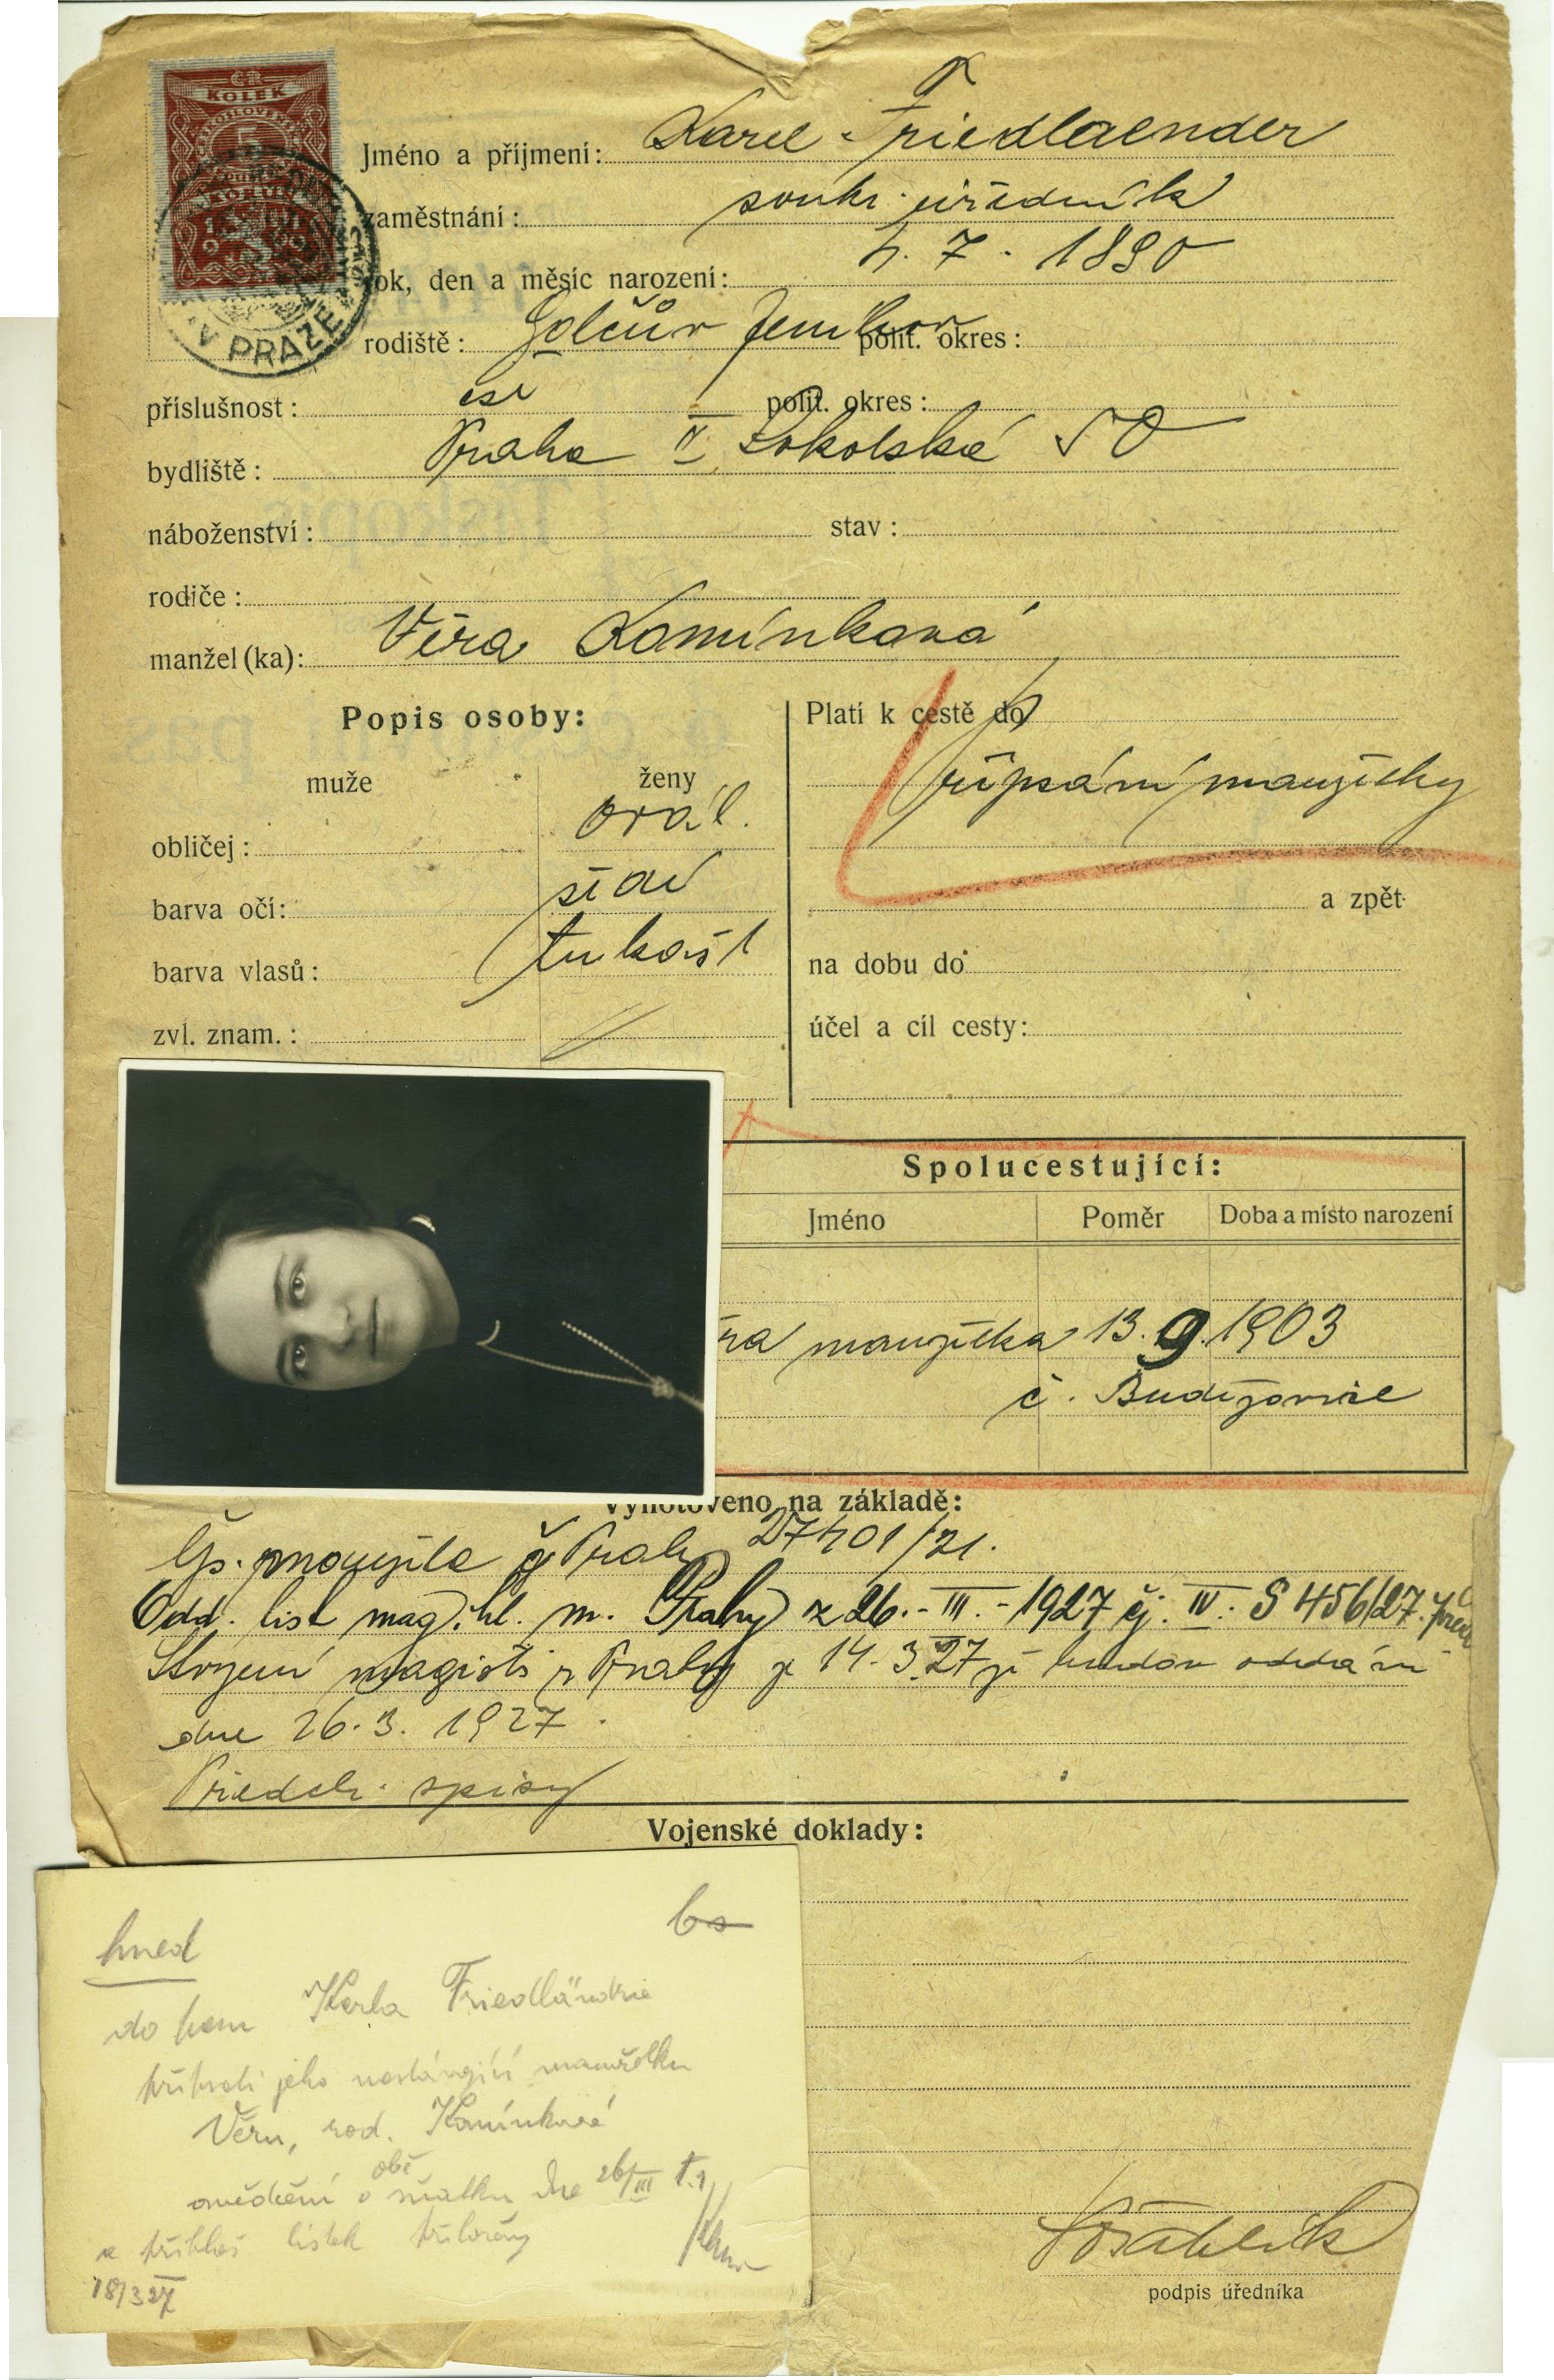 ČR
KOLEK
ČESKOSLOVENSKÝ
5
V PRAZE
Jméno a příjmení: Karel Friedlaender
zaměstnání: soukr. úředník
rok, den a měsíc narození: 4. 7. 1890
rodiště: Golčův Jeníkov polit. okres:
příslušnost: čsl polit. okres:
bydliště: Praha II Sokolská 50
náboženství: stav:
rodiče:
manžel(ka): Věra Kamínková
Popis osoby:
muže ženy
obličej: ovál.
barva očí: šedé
barva vlasů: tm kašt
zvl. znam.:
Platí k cestě do
připsání manželky
a zpět
na dobu do
účel a cíl cesty:
Spolucestující:
Jméno Poměr Doba a místo narození
manželka 13. 9. 1903
č. Budějovice
Vyhotoveno na základě:
manžela Prah 27401/21.
Odd. list mag. hl. m. Prahy z 26. - III. - 1927 čj. IV. S 456/27.
Stvrzení magistr v Praby z 14. 3. 27 že budou oddáni
dne 26. 3. 1927.
Předch. spisy
Vojenské doklady:
hned
do pasu Karla Friedländra
připsati jeho nastávající manželku
Věru, roz. Kamínková
obě
osvědčení o sňatku dne 26/III t.r.
a přihlaš lístek přiloženy
18/3 27
podpis úředníka